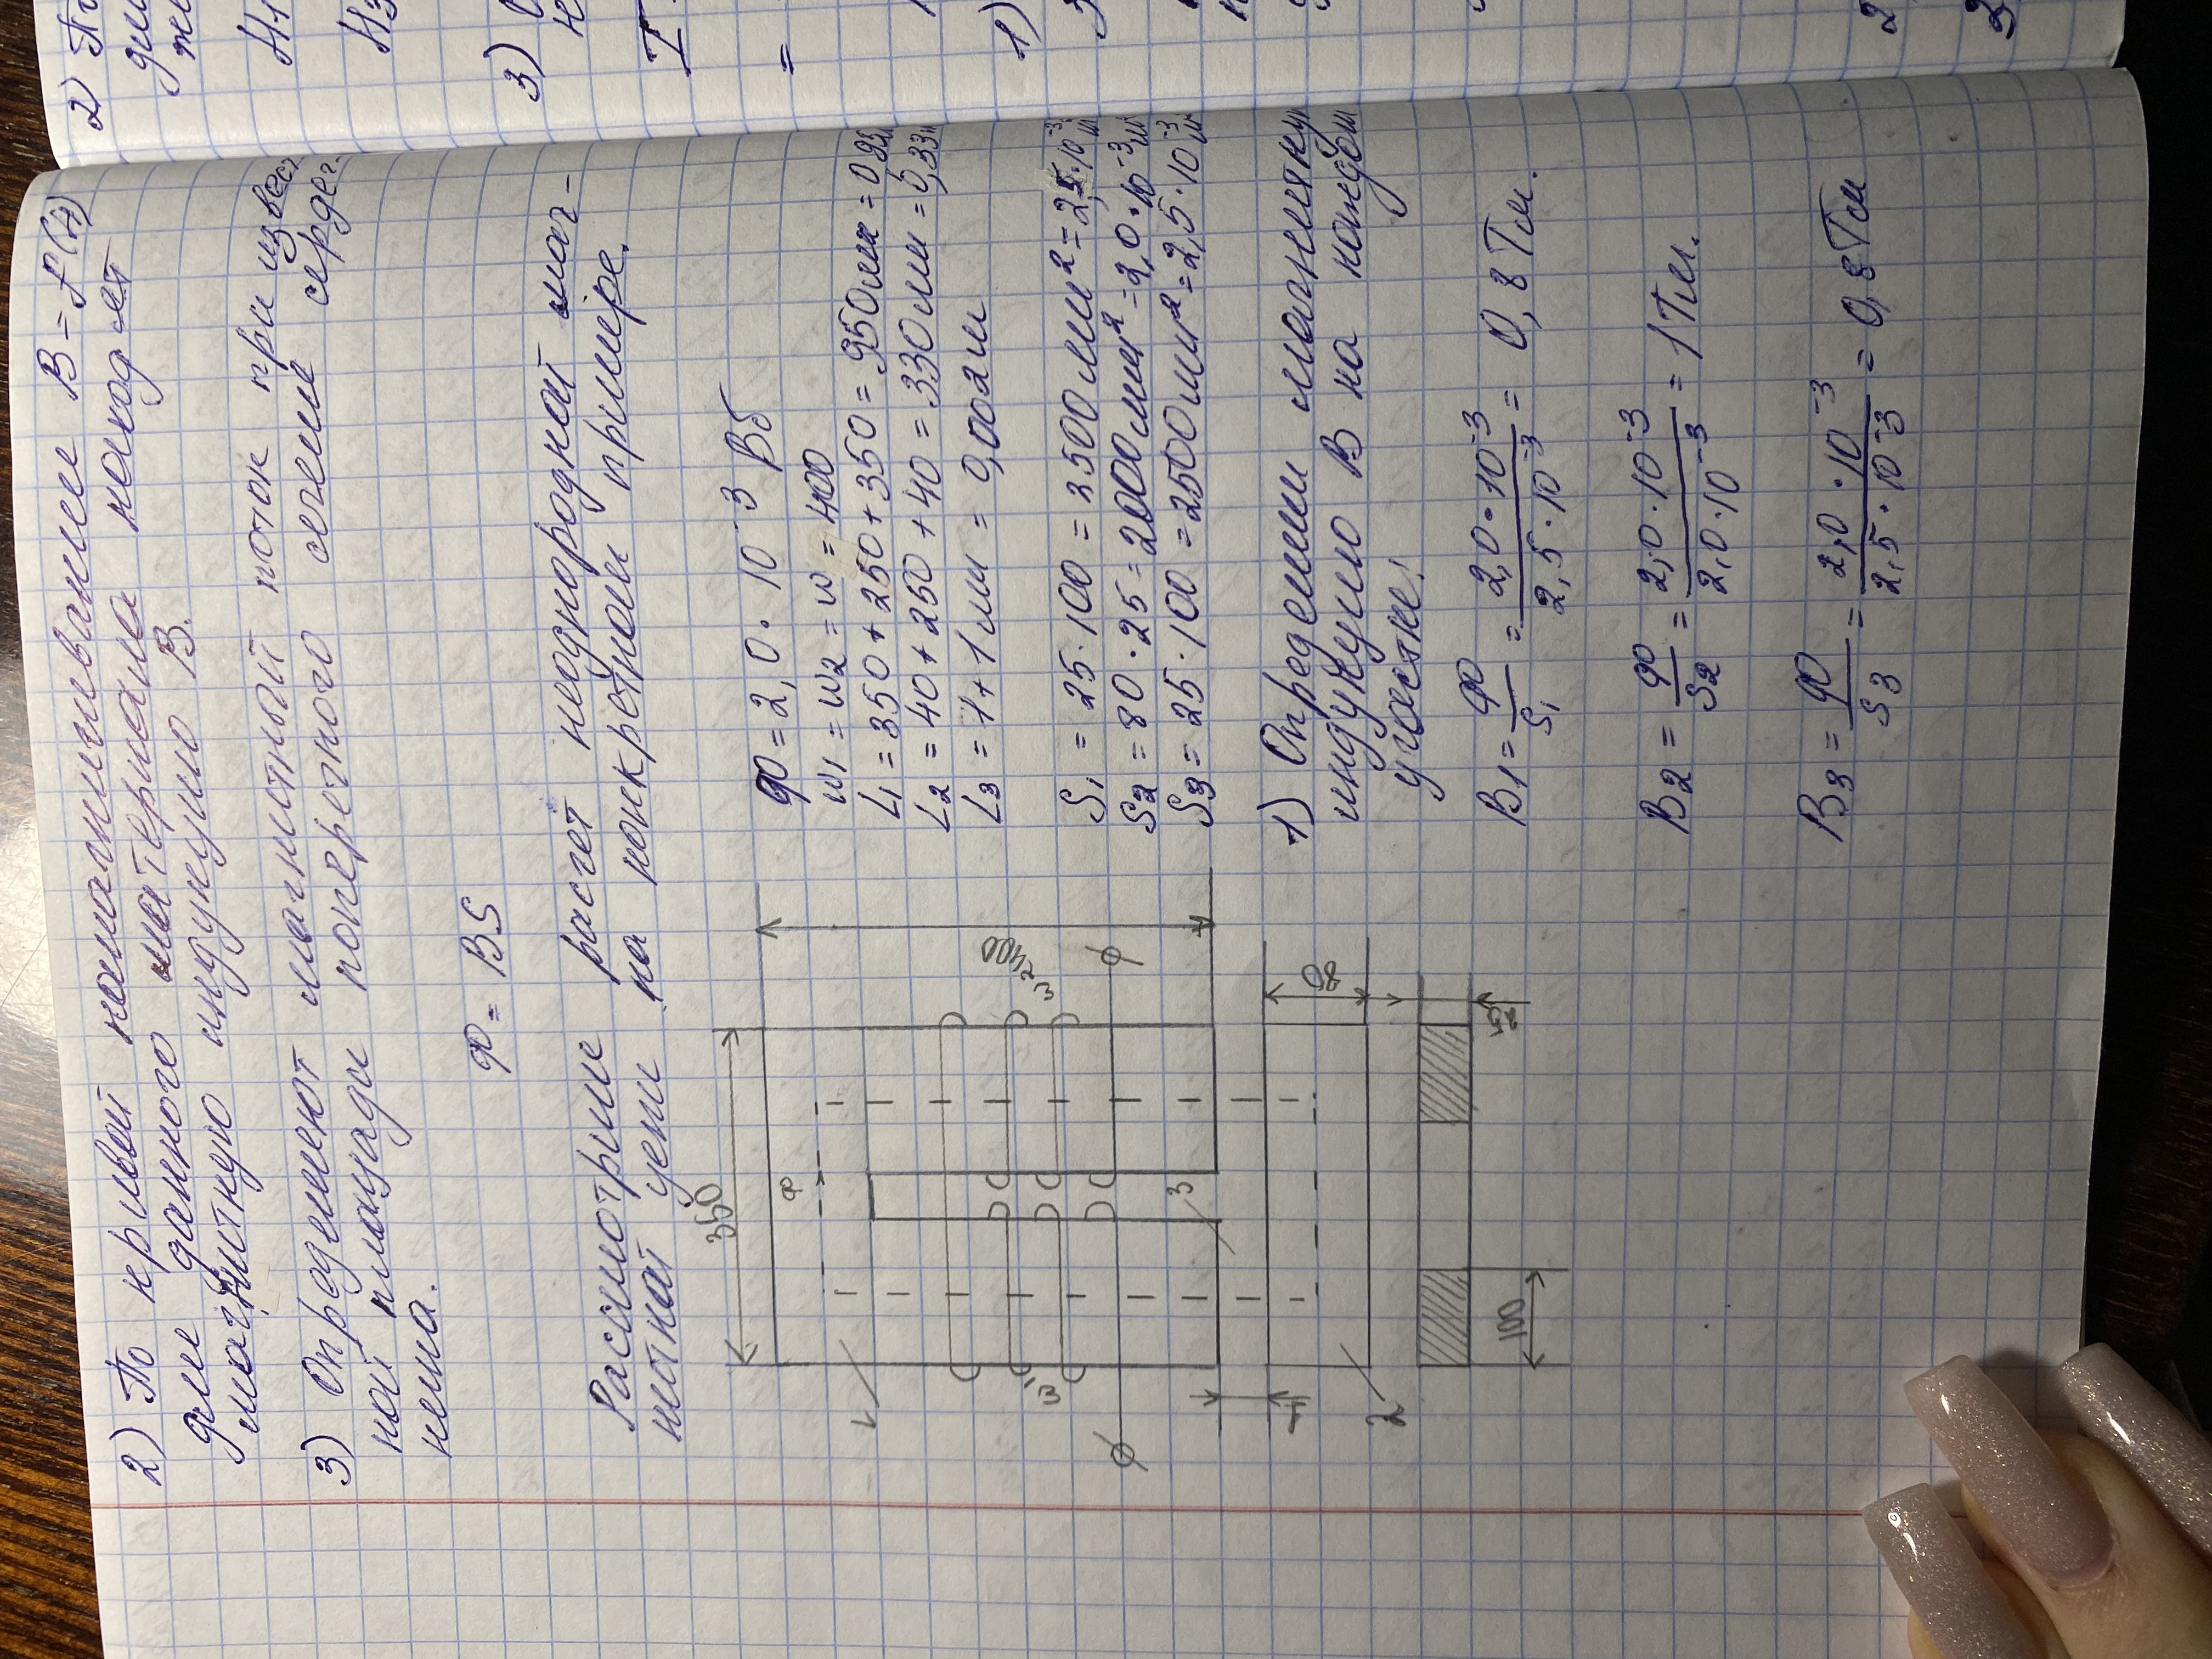 2) По кривой намагничивание B = f(H)
для данного материала находят
магнитную индукцию B.
3) Определяют магнитный поток при извес
ной площади поперечного сечения сердеч-
ника.
Ф = BS
Рассмотрим расчёт неоднородной маг-
нитной цепи на конкретном примере.
350
Ф
1
W1
W2
400
3
Ф
Ф
1
80
2
25
100
Ф = 2,0 · 10⁻³ Вб
W1 = W2 = W = 400
L1 = 350 + 250 + 350 = 950мм = 0,95м
L2 = 40 + 250 + 40 = 330мм = 0,33м
L3 = 1 + 1 мм = 0,002м
S1 = 25 · 100 = 2500 мм² = 2,5 · 10⁻³ м
S2 = 80 · 25 = 2000 мм² = 2,0 · 10⁻³ м
S3 = 25 · 100 = 2500мм² = 2,5 · 10⁻³ м
1) Определим магнитную
индукцию B на каждом
участке:
B1 = Ф/S1 = 2,0 · 10⁻³/2,5 · 10⁻³ = 0,8 Тл.
B2 = Ф/S2 = 2,0 · 10⁻³/2,0 · 10⁻³ = 1 Тл.
B3 = Ф/S3 = 2,0 · 10⁻³/2,5 · 10⁻³ = 0,8 Тл
2) По
H1
H3
3)
I
=
1)
2
3